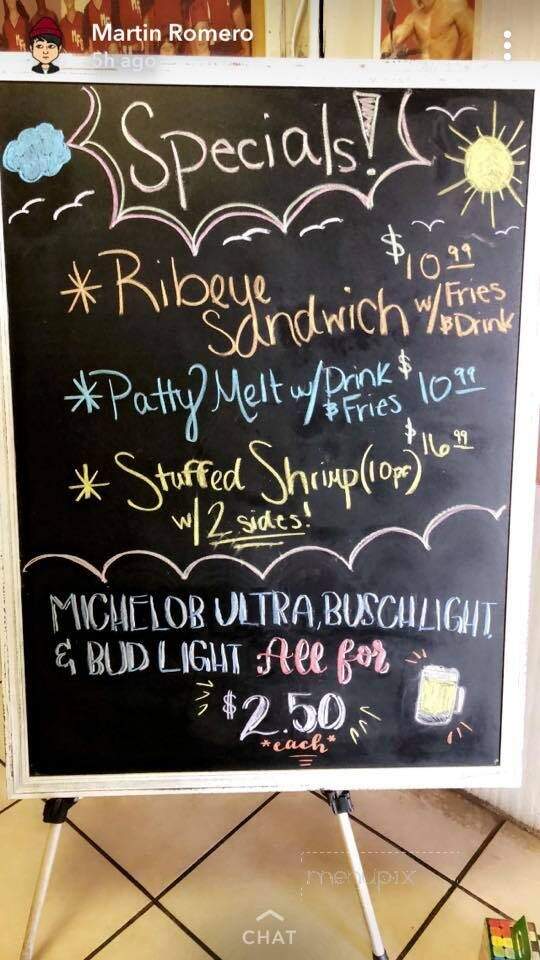 Martin Romero
5h ago
Specials!
*Ribeye $10.99
Sandwich w/Fries
&Drink
*Patty Melt w/Drink $10.99
&Fries
*Stuffed Shrimp (10pc) $16.99
w/2 sides!
MICHELOB ULTRA, BUSCH LIGHT
& BUD LIGHT All for
$2.50
*each*
menupix
CHAT